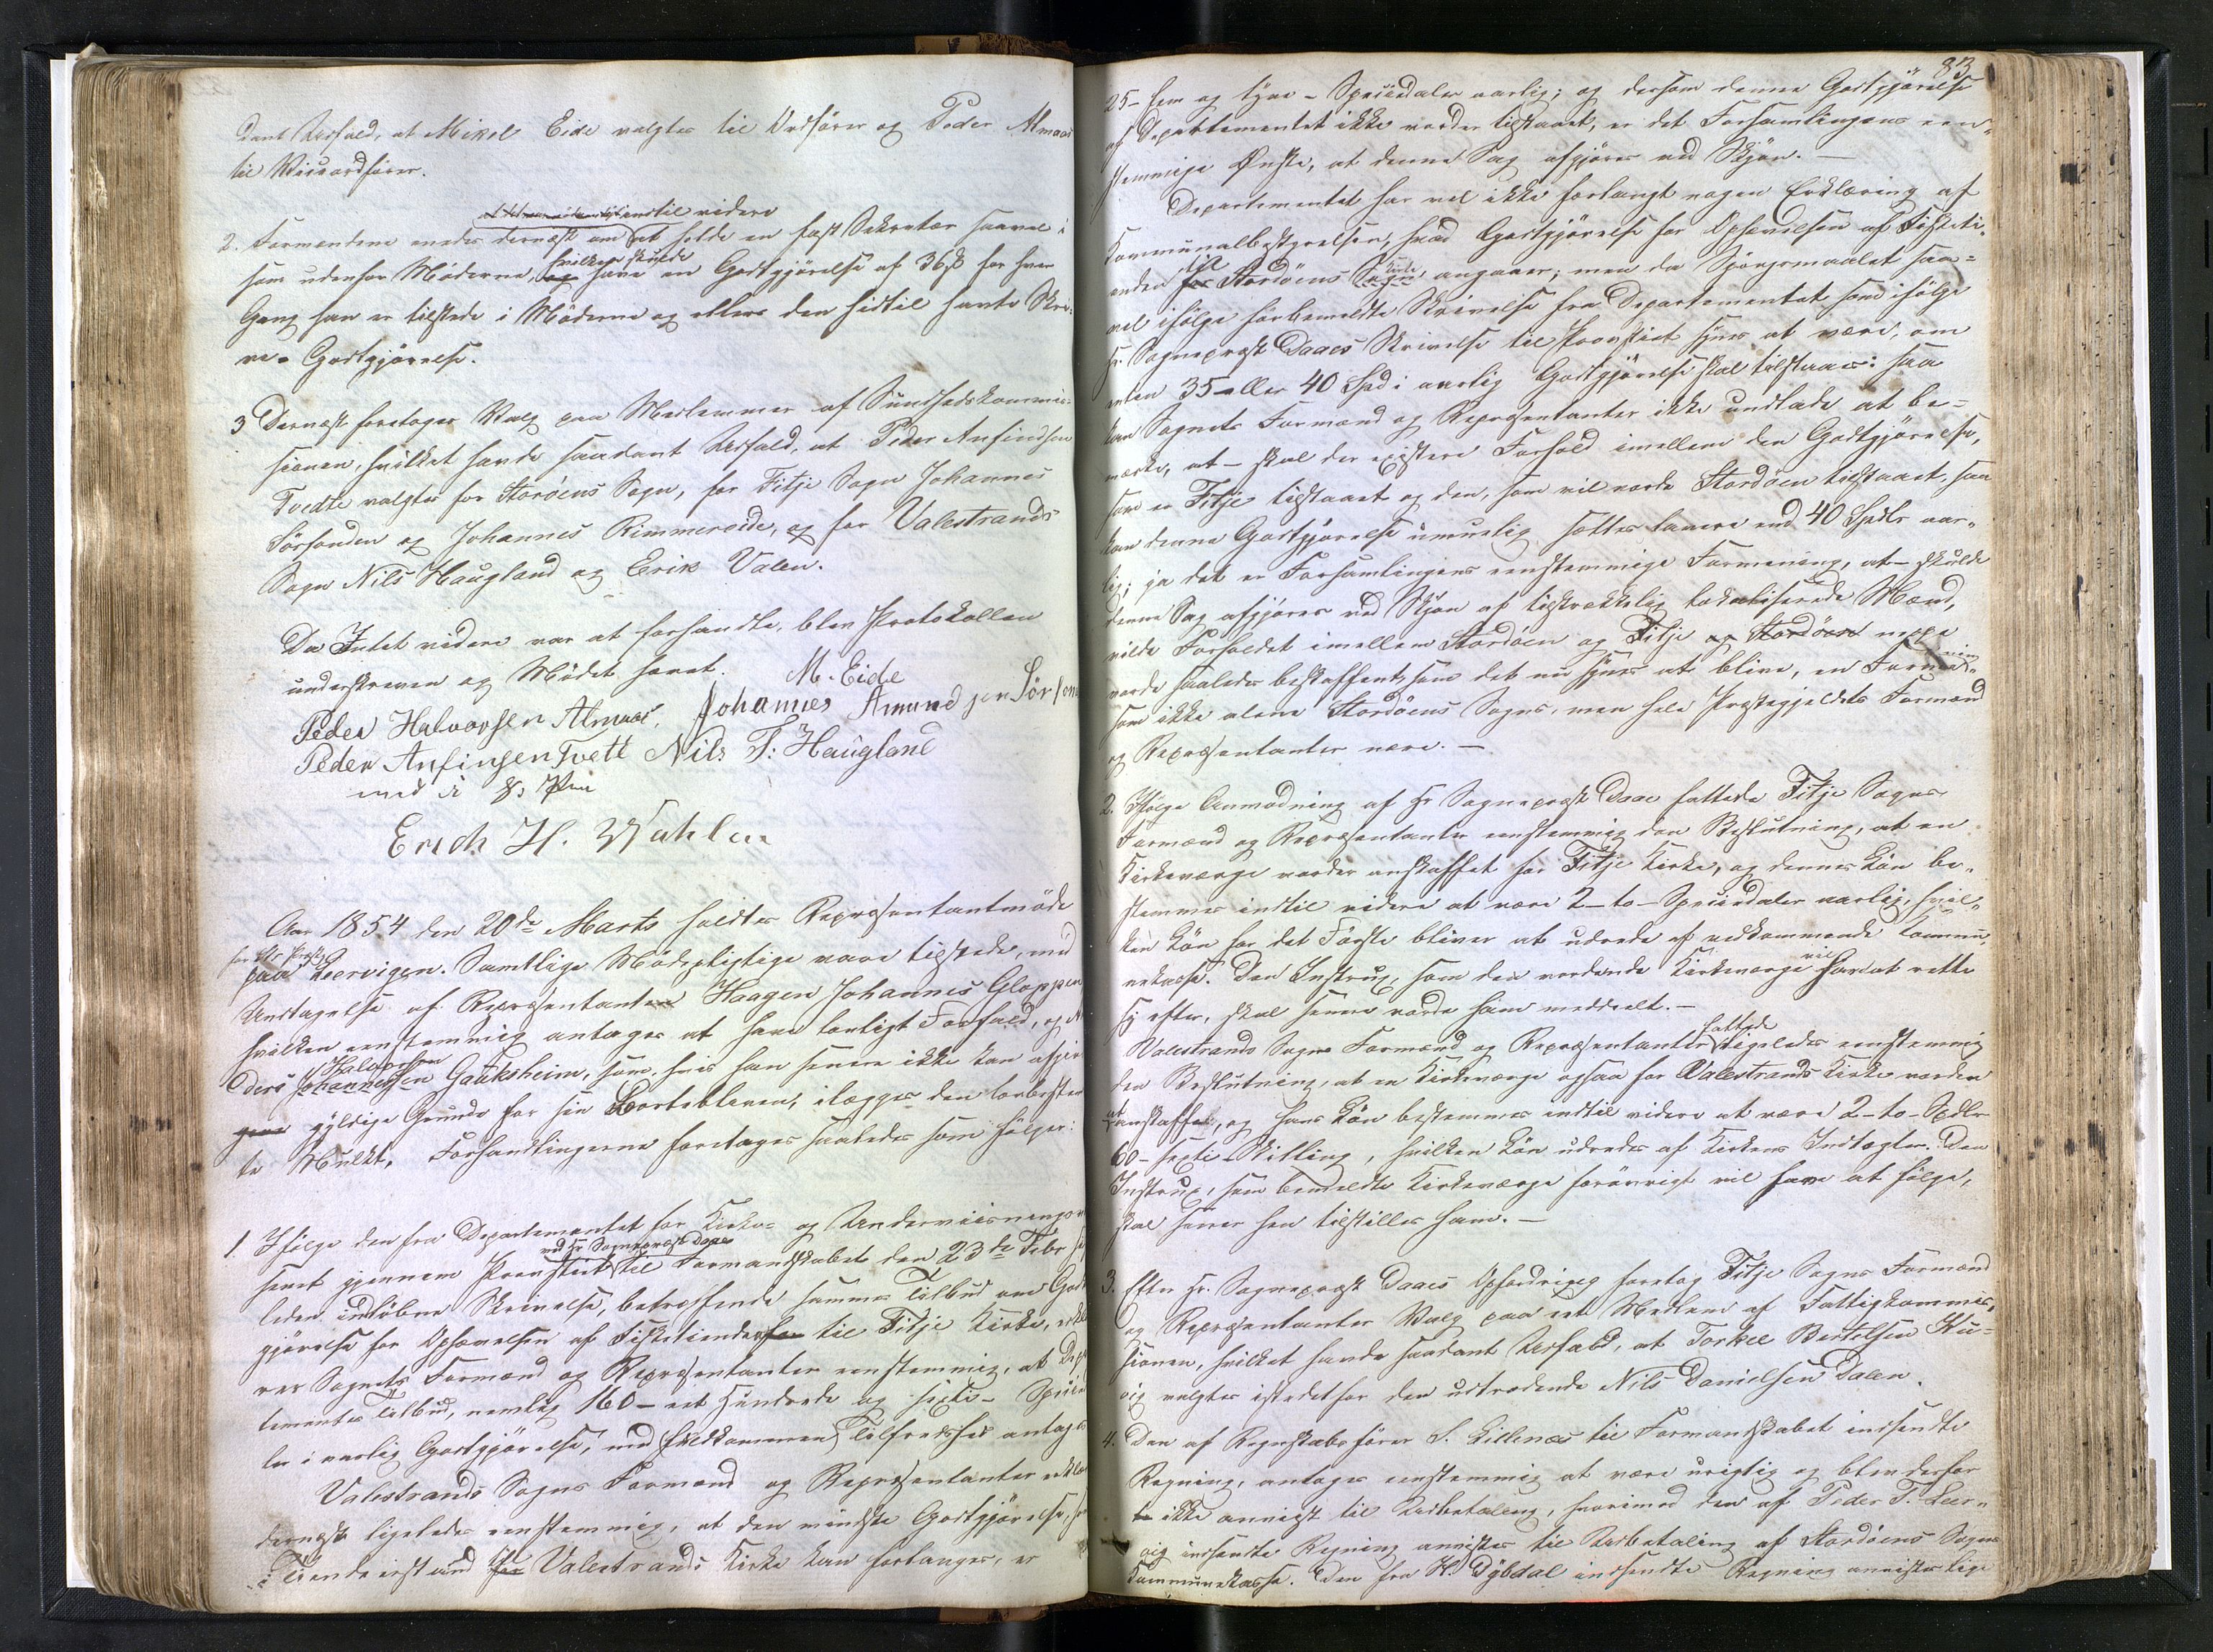 dant Udfald, at Mikel Eide valgtes til Ordfører og Peder Almaas
til Viceordfører.
indtil videre
2. Formændene enedes dernæst om at holde en fast Sekretær saavel i
hvilken skulde
som udenfor Møderne, og have en Godtgjørelse af 36 s for hver
Gang han er tilstede i Møderne og ellers den hidtil havte Skri-
ver Godtgjørelse.
3 Dernæst foretoges Valg paa Medlemmer af Sundhedskommis-
sionen, hvilket havde saadant Udfald, at Peder Anfindsen
Tvedte valgtes for Storöens Sogn, for Fitje Sogn Johannes
Sørhonden og Johannes Rimmereide, og for Valestrands
Sogn Nils Haugland og Erik Valen.
Da Intet videre var at forhandle, blev Protokollen
underskreven og Mödet hævet. M. Eide
Peder Halvorsen Almaas. Johannes Amundsen Sörhon
Peder Anfinsen Tvett Nils T. Haugland
med i P. Pen
Erich H. Wahlen
Aar 1854 den 20de Marts holdtes Repræsentantmöde
paa Leervigen. Samtlige Mödepligtige vare tilstede, med
Undtagelse af Repræsentanten Haagen Johannes Gloppen
hvilken eenstemmig antages at have lovligt Forfald, og
Halvorsen
Johannesen Gauksheim, som, hvis han senere ikke kan afgive
gyldige Grunde for sin Bortebliven, ilægges den lovbestem
te Mulkt. Forhandlingerne foretoges saaledes som fölger:
1. Ifölge den fra Departementet for Kirke- og Underviisningsvæ
ved Hr Sognepræst Daae
senet gjennem Provstiet til Formandskabet den 23de Febr
leden indlöbne Skrivelse, betræffende samme Tilbud om Godt
gjørelse for Ophævelsen af Fisketienden til Fitje Kirke, erklæ
rer Sognets Formænd og Repræsentanter eenstemmig, at Depar
tementets Tilbud, nemlig 160 - eet hundrede og sexti - Specieda
ler i aarlig Godtgjörelse, med fuldkommen Tilfredshed antages
Valestrands Sogns Formænd og Repræsentanter erklæ
dernæst ligeledes eenstemmig, at den mindste Godtgjörelse,
Tiende Valestrands Kirke kan forlanges, er
83
25 - fem og tyve - Speciedaler aarlig; og dersom denne Godtgjörelse
af Departementet ikke vorder tilstaaet, er det Forsamlingens een-
stemmige Ønske, at denne Sag afgjöres ved Skjön. -
Departementet har vel ikke forlangt nogen Erklæring af
Kommunalbestyrelsen, hvad Godtgjörelse for Ophævelsen af Fisketi-
til Kirke
enden for Stordöens Sogn, angaaer; men da Spörgsmaalet saa-
vel ifölge förbemeldte Skrivelse fra Departementet som ifölge
Hr. Sognepræst Daaes Skrivelse til Provstiet synes at være, om
enten 35 eller 40 Spd i aarlig Godtgjörelse skal tilstaaes: saa
kan Sognets Formænd og Repræsentanter ikke undlade at be-
mærke, at - skal der existere Forhold imellem den Godtgjörelse,
som er Fitje tilstaaet og den, som vil vorde Stordöen tilstaaet, saa
kan denne Godtgjörelse umuelig sættes lavere end 40 Spdlr aar-
lig; ja det er Forsamlingens eenstemmige Formening, at - skulde
denne Sag afgjöres ved Skjön af tilstrækkelig lokaliserede Mænd,
vilde Forholdet imellem Stordöen og Fitje og Stordöen neppe
vorde saaledes beskaffent, som det nu synes at blive, en Formening
som ikke alene Stordöens Sogns, men hele Præstegjeldets Formænd
og Repræsentanter nære. -
2. Ifölge Anmodning af Hr Sognepræst Daae fattede Fitje Sogns
Formænd og Repræsentanter eenstemmig den Beslutning, at en
Kirkeværge vorder anskaffet for Fitje Kirke, og dennes Lön be-
stemmes indtil videre at være 2 - to - Speciedaler aarlig, hvil-
ken Lön for det Förste bliver at udrede af vedkommende Kommu-
nekasse. Den Instrux, som den vordende Kirkeværge vil have at rette
sig efter, skal senere vorde ham meddeelt. -
fattede
Valestrands Sogns Formænd og Repræsentanter ligeledes eenstemmig
den Beslutning, at en Kirkeværge ogsaa for Valestrands Kirke vorder
at anskaffe, og hans Lön bestemmes indtil videre at være 2 - to - Spdlr
60 - sexti Skilling, hvilken Lön udredes af Kirkens Indtægter. Den
Instrux, som bemeldte Kirkeværge forövrigt vil have at fölge,
skal senere hen tilstilles ham. -
3. Efter Hr. Sognepræst Daaes Opfordring foretog Fitje Sogns Formænd
og Repræsentanter Valg paa eet Medlem af Fattigkommis-
sionen, hvilket havde saadant Udfald, at Torkel Bertelsen Ku-
vig valgtes istedetfor den udtrædende Nils Danielsen Dalen.
4. Den af Regnskabsförer S. Lillenæs til Formandskabet indsendte
Regning, antoges eenstemmig at være urigtig og blev derfor
ikke anviist til Udbetaling, hvorimod den af Peder T. Leer-
vig indsendte Regning anvistes til Udbetaling af Stordöens Sogns
Kommunekasse. Den fra H. Dybdal indsendte Regning anvistes lige